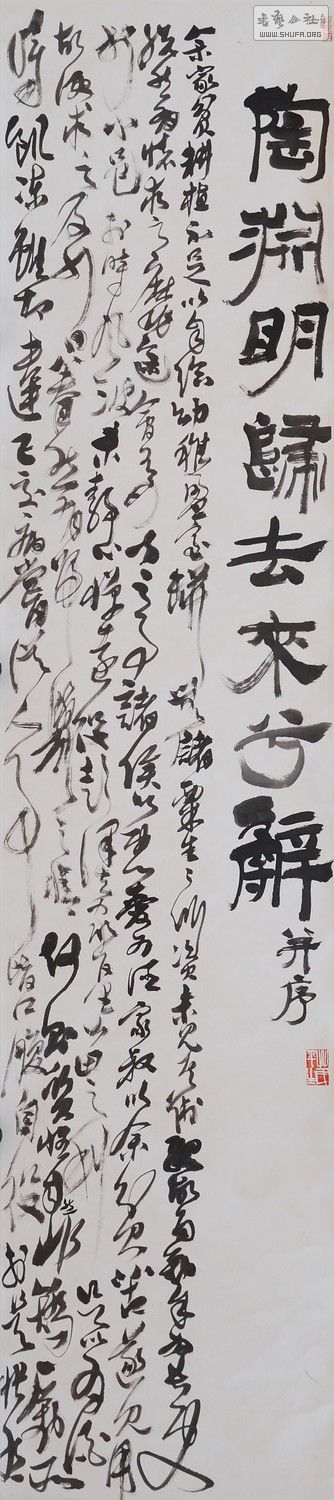 书艺公社
WWW.SHUFA.ORG
陶淵明歸去來兮辭并序
余家貧耕植不足以自給幼稚盈室缾無儲粟生生所資未見其術親故多勸余為長吏
脫然有懷求之靡途會有四方之事諸侯以惠愛為德家叔以余貧苦遂見用
於小邑於時風波未靜心憚遠役彭澤去家百里公田之利足以為酒
故便求之及少日眷然有歸歟之情何則質性自然非矯勵所
得飢凍雖切違己交病嘗從人事皆口腹自役於是悵然